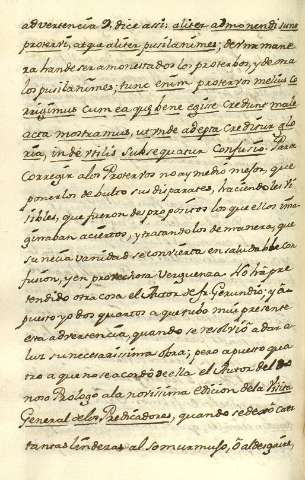 advertencia 2. dice assi: aliter admonendi sunt
protervi, atque aliter pusilanimes; de una mane-
ra han de ser amonestados los protervos, y de otra
los pusilanimes; tunc enim protervos melius co-
rrigimus cum ea que bene egisse credunt male
acta mostramus, ut unde adepta creditur glo-
ria, inde utilis subsequatur confusio. Para
corregir a los Protervos no ay medio mejor, que
ponerlos de bulto sus disparates, haciendoles vi-
sibles, que fueron despropositos los que ellos ima-
ginaban aciertos, y tratandolos de manera, que
su necia vanidad se convierta en saludable con-
fusion, y en provechosa verguenza. No ha pre-
tendido otra cosa el Autor de fr. Gerundio; y a-
puesto yo dos quartos a que tubo mui presente
esta advertencia, quando se resolviò a dar a
luz su necesarissima obra; pero apuesto qua-
tro a que no se acordò de ella el Autor del do-
noso Prologo a la novissima edicion de la Visita
General de los Predicadores, quando se dexò caer
tantas lindezas al somurmujo, ô al desgaire,